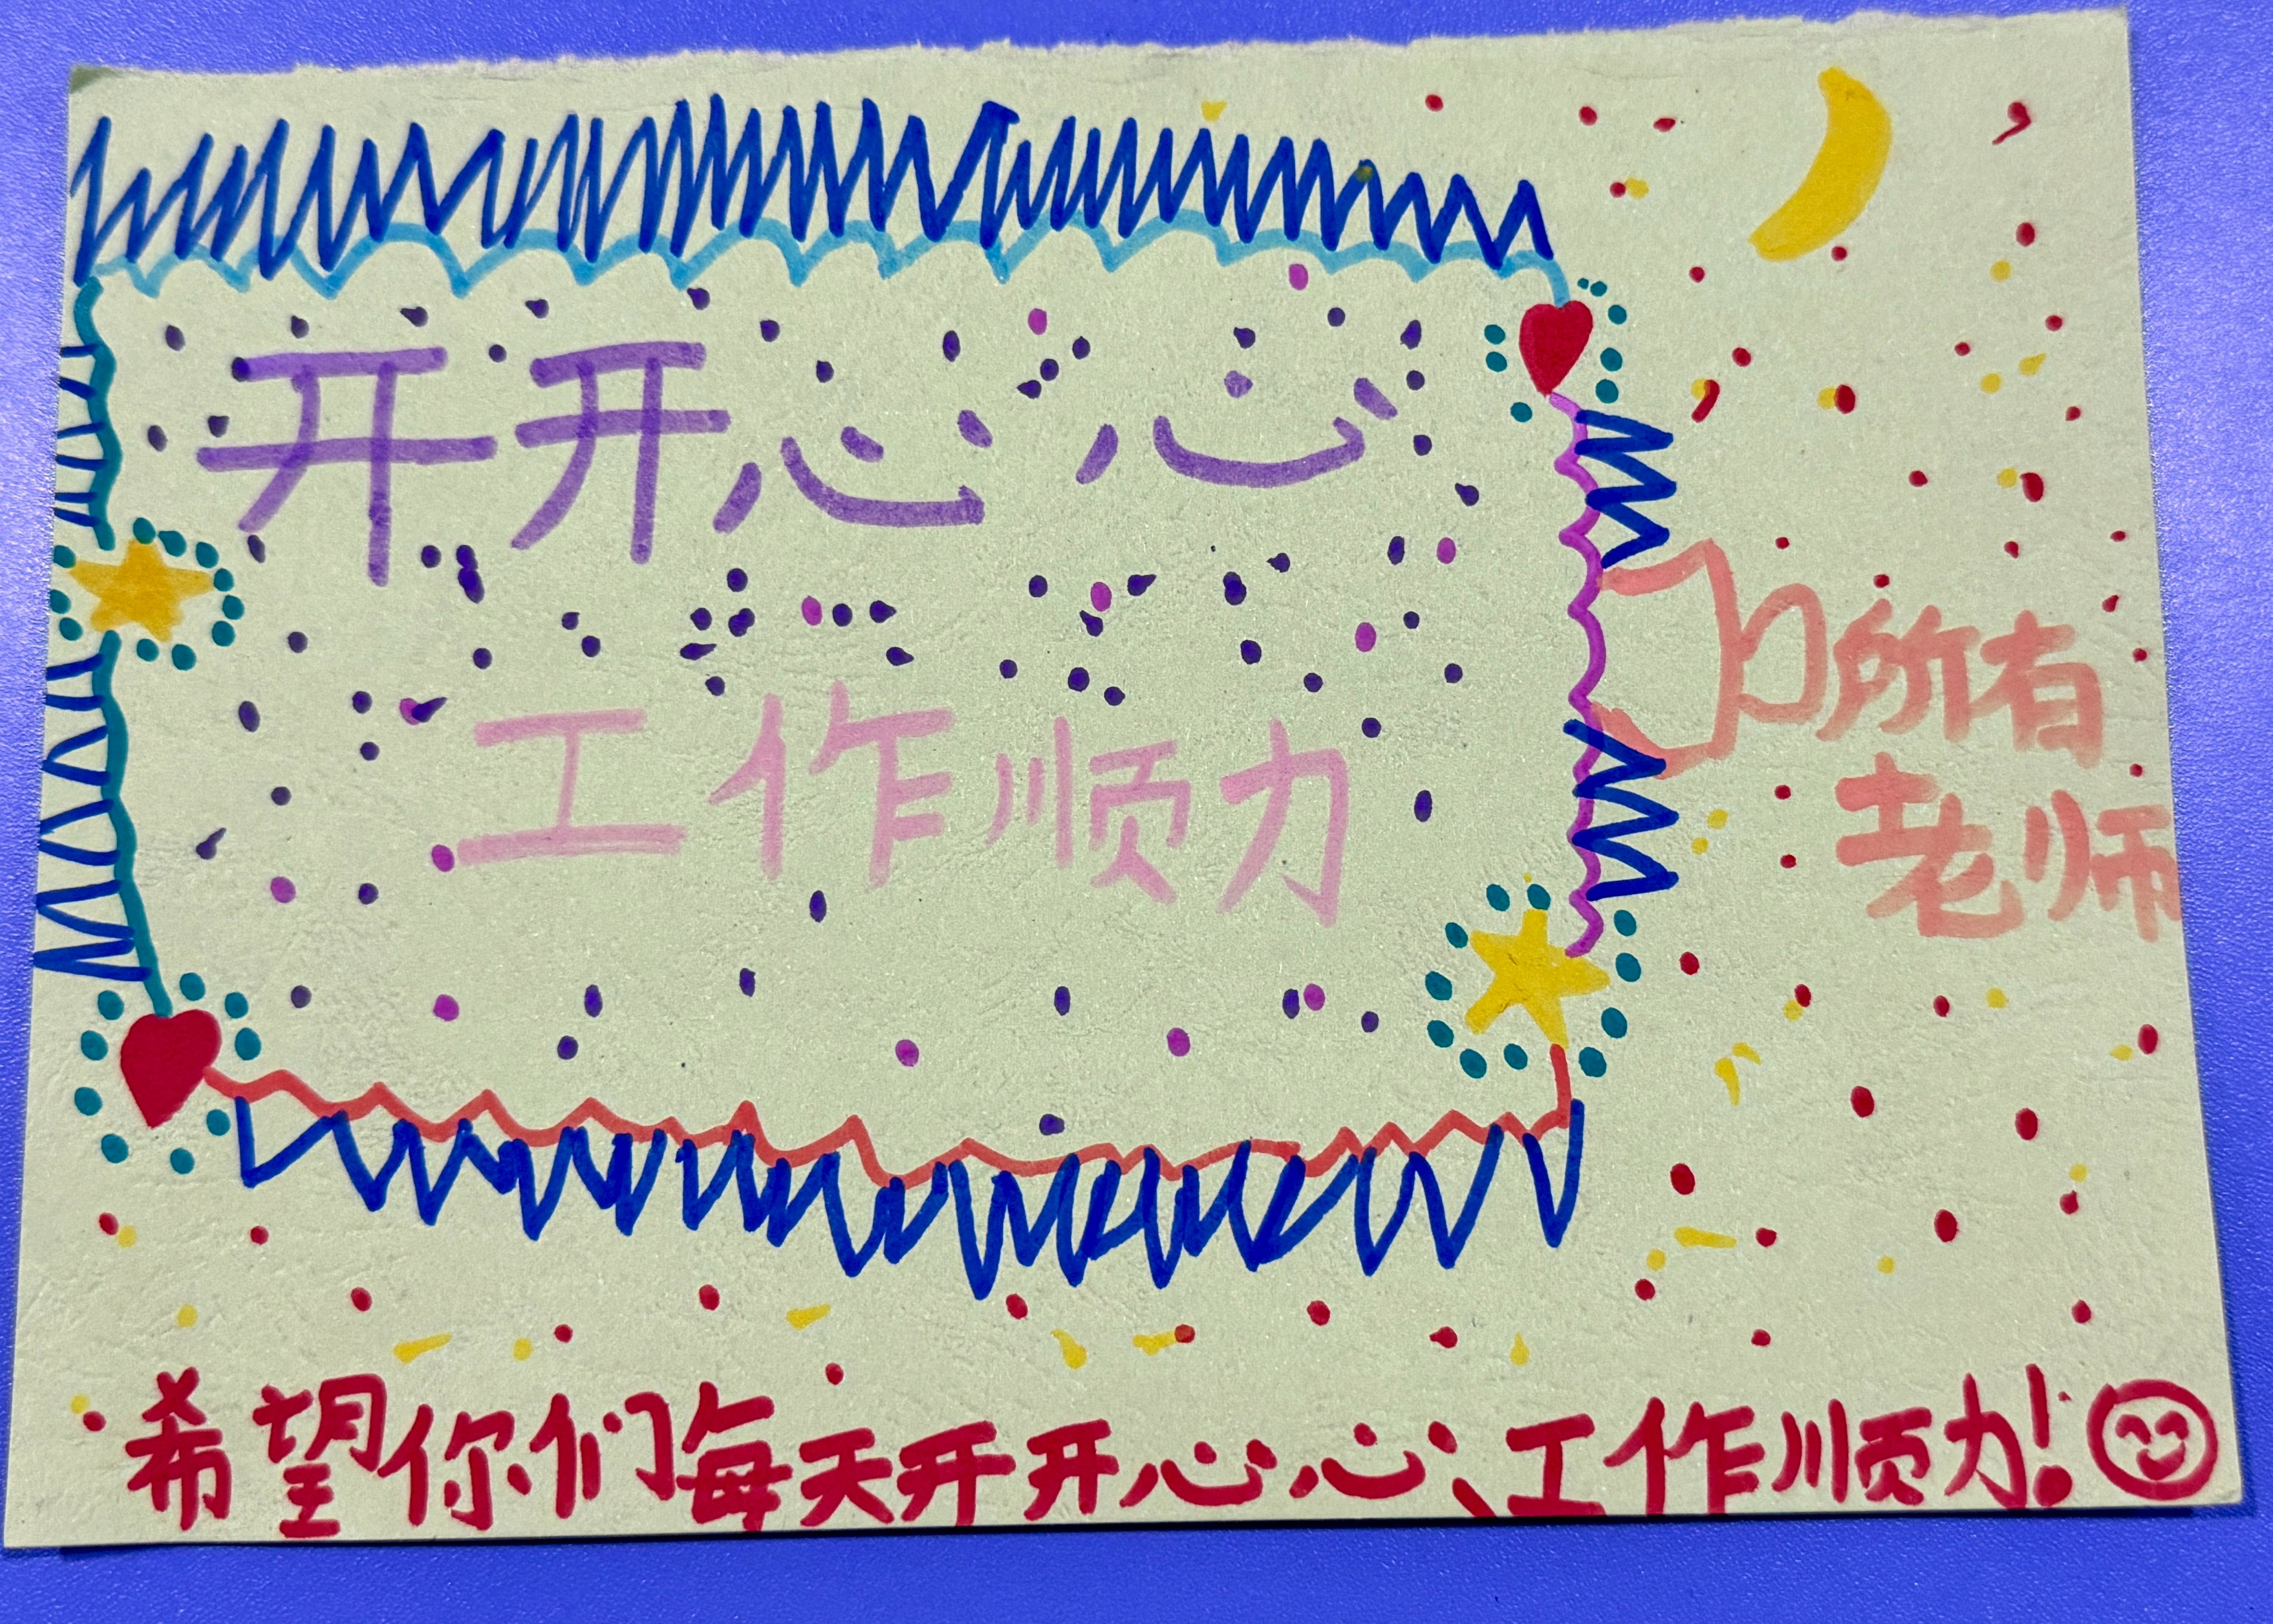 开开心心
工作顺力
所有
老师
希望你们每天开开心心、工作顺力!